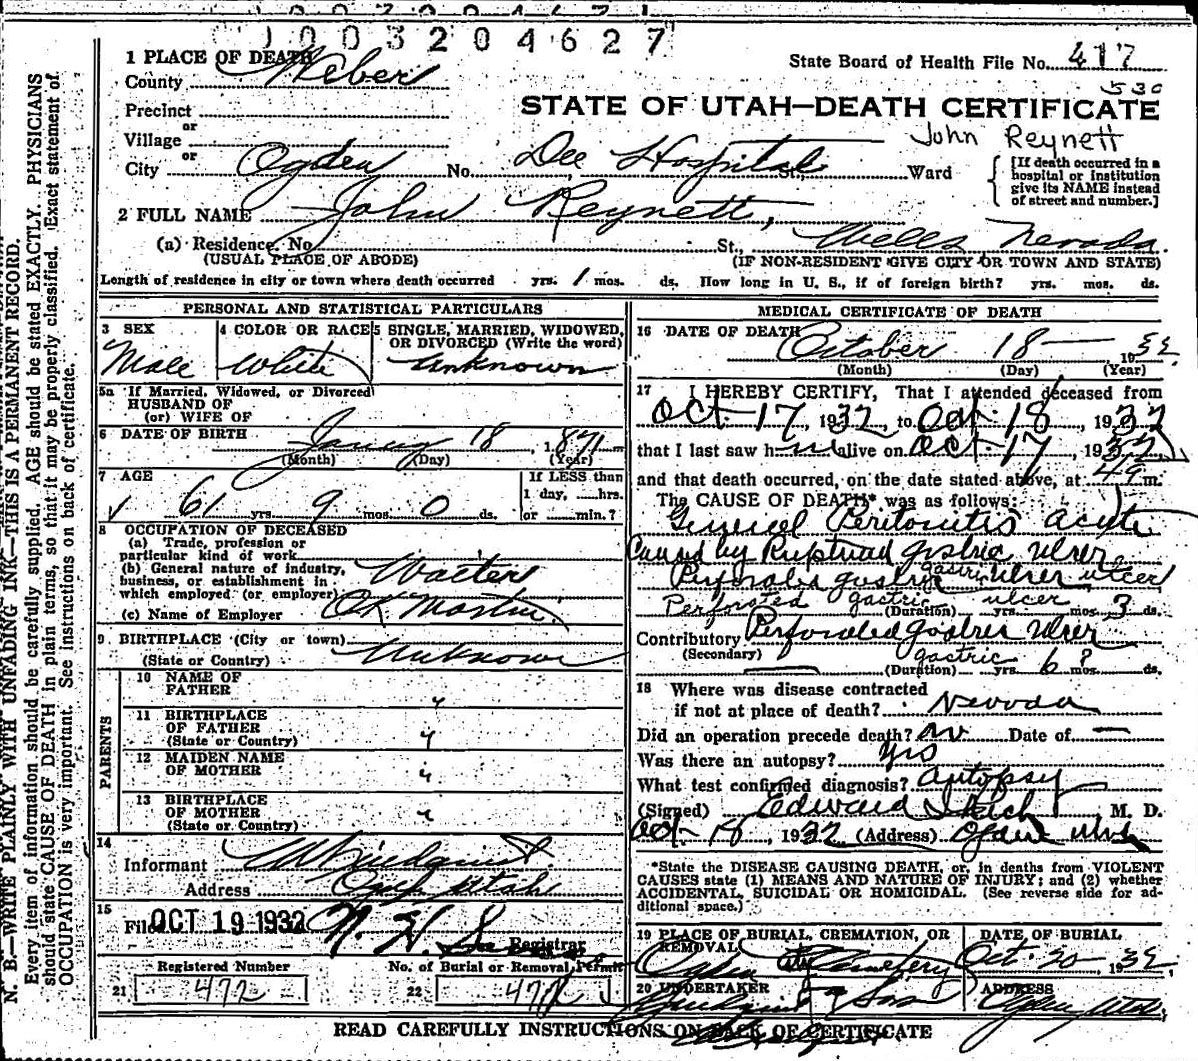 1003204627
1 PLACE OF DEATH
County Weber
State Board of Health File No. 417
530
Precinct
STATE OF UTAH—DEATH CERTIFICATE
or
Village
John Reynett
or
City Ogden No. Dee Hospital St., Ward
[If death occurred in a hospital or institution give its NAME instead of street and number.]
2 FULL NAME John Reynett,
(a) Residence. No. St., Wells Nevada.
(USUAL PLACE OF ABODE) (IF NON-RESIDENT GIVE CITY OR TOWN AND STATE)
Length of residence in city or town where death occurred yrs. 1 mos. ds. How long in U. S., if of foreign birth? yrs. mos. ds.
PERSONAL AND STATISTICAL PARTICULARS
3 SEX 4 COLOR OR RACE 5 SINGLE, MARRIED, WIDOWED, OR DIVORCED (Write the word)
Male White Unknown
5a If Married, Widowed, or Divorced
HUSBAND OF
(or) WIFE OF
6 DATE OF BIRTH 18, 1871
(Month) (Day) (Year)
7 AGE If LESS than
1 day, hrs.
61 yrs. 9 mos. 0 ds. or min.?
8 OCCUPATION OF DECEASED
(a) Trade, profession or
particular kind of work
(b) General nature of industry,
business, or establishment in
which employed (or employer) Waiter
(c) Name of Employer O.K. Martin.
9 BIRTHPLACE (City or town)
(State or Country) Unknown
PARENTS
10 NAME OF
FATHER "
11 BIRTHPLACE
OF FATHER
(State or Country) "
12 MAIDEN NAME
OF MOTHER "
13 BIRTHPLACE
OF MOTHER
(State or Country) "
14
Informant
Address Utah
15
Filed OCT 19 1932 Registrar
Registered Number No. of Burial or Removal Permit
21 472 22 472
MEDICAL CERTIFICATE OF DEATH
16 DATE OF DEATH October 18 — , 1932
(Month) (Day) (Year)
17 I HEREBY CERTIFY, That I attended deceased from
Oct 17, 1932, to Oct. 18, 1932
that I last saw him alive on Oct. 17, 1932,
and that death occurred, on the date stated above, at m.
The CAUSE OF DEATH* was as follows:
General Peritonitis acute
Caused by Ruptured gastric ulcer
Perforated gastric ulcer gastric ulcer
Perforated gastric ulcer (Duration) yrs. mos. 3 ds.
Contributory Perforated gastric ulcer
(Secondary) gastric (Duration) yrs. 6? mos. ds.
18 Where was disease contracted
if not at place of death? Nevada
Did an operation precede death? no Date of —
Was there an autopsy? yes
What test confirmed diagnosis? Autopsy
(Signed) Edward M. D.
Oct. 18, 1932 (Address) Ogden Utah
*State the DISEASE CAUSING DEATH, or, in deaths from VIOLENT
CAUSES state (1) MEANS AND NATURE OF INJURY; and (2) whether
ACCIDENTAL, SUICIDAL OR HOMICIDAL. (See reverse side for additional space.)
19 PLACE OF BURIAL, CREMATION, OR REMOVAL DATE OF BURIAL
Ogden City Cemetery Oct. 20, 1932
20 UNDERTAKER ADDRESS
Lindquist & Sons Ogden Utah.
READ CAREFULLY INSTRUCTIONS ON BACK OF CERTIFICATE
N. B.—WRITE PLAINLY WITH UNFADING INK—THIS IS A PERMANENT RECORD.
Every item of information should be carefully supplied. AGE should be stated EXACTLY. PHYSICIANS
should state CAUSE OF DEATH in plain terms, so that it may be properly classified. Exact statement of
OCCUPATION is very important. See instructions on back of certificate.